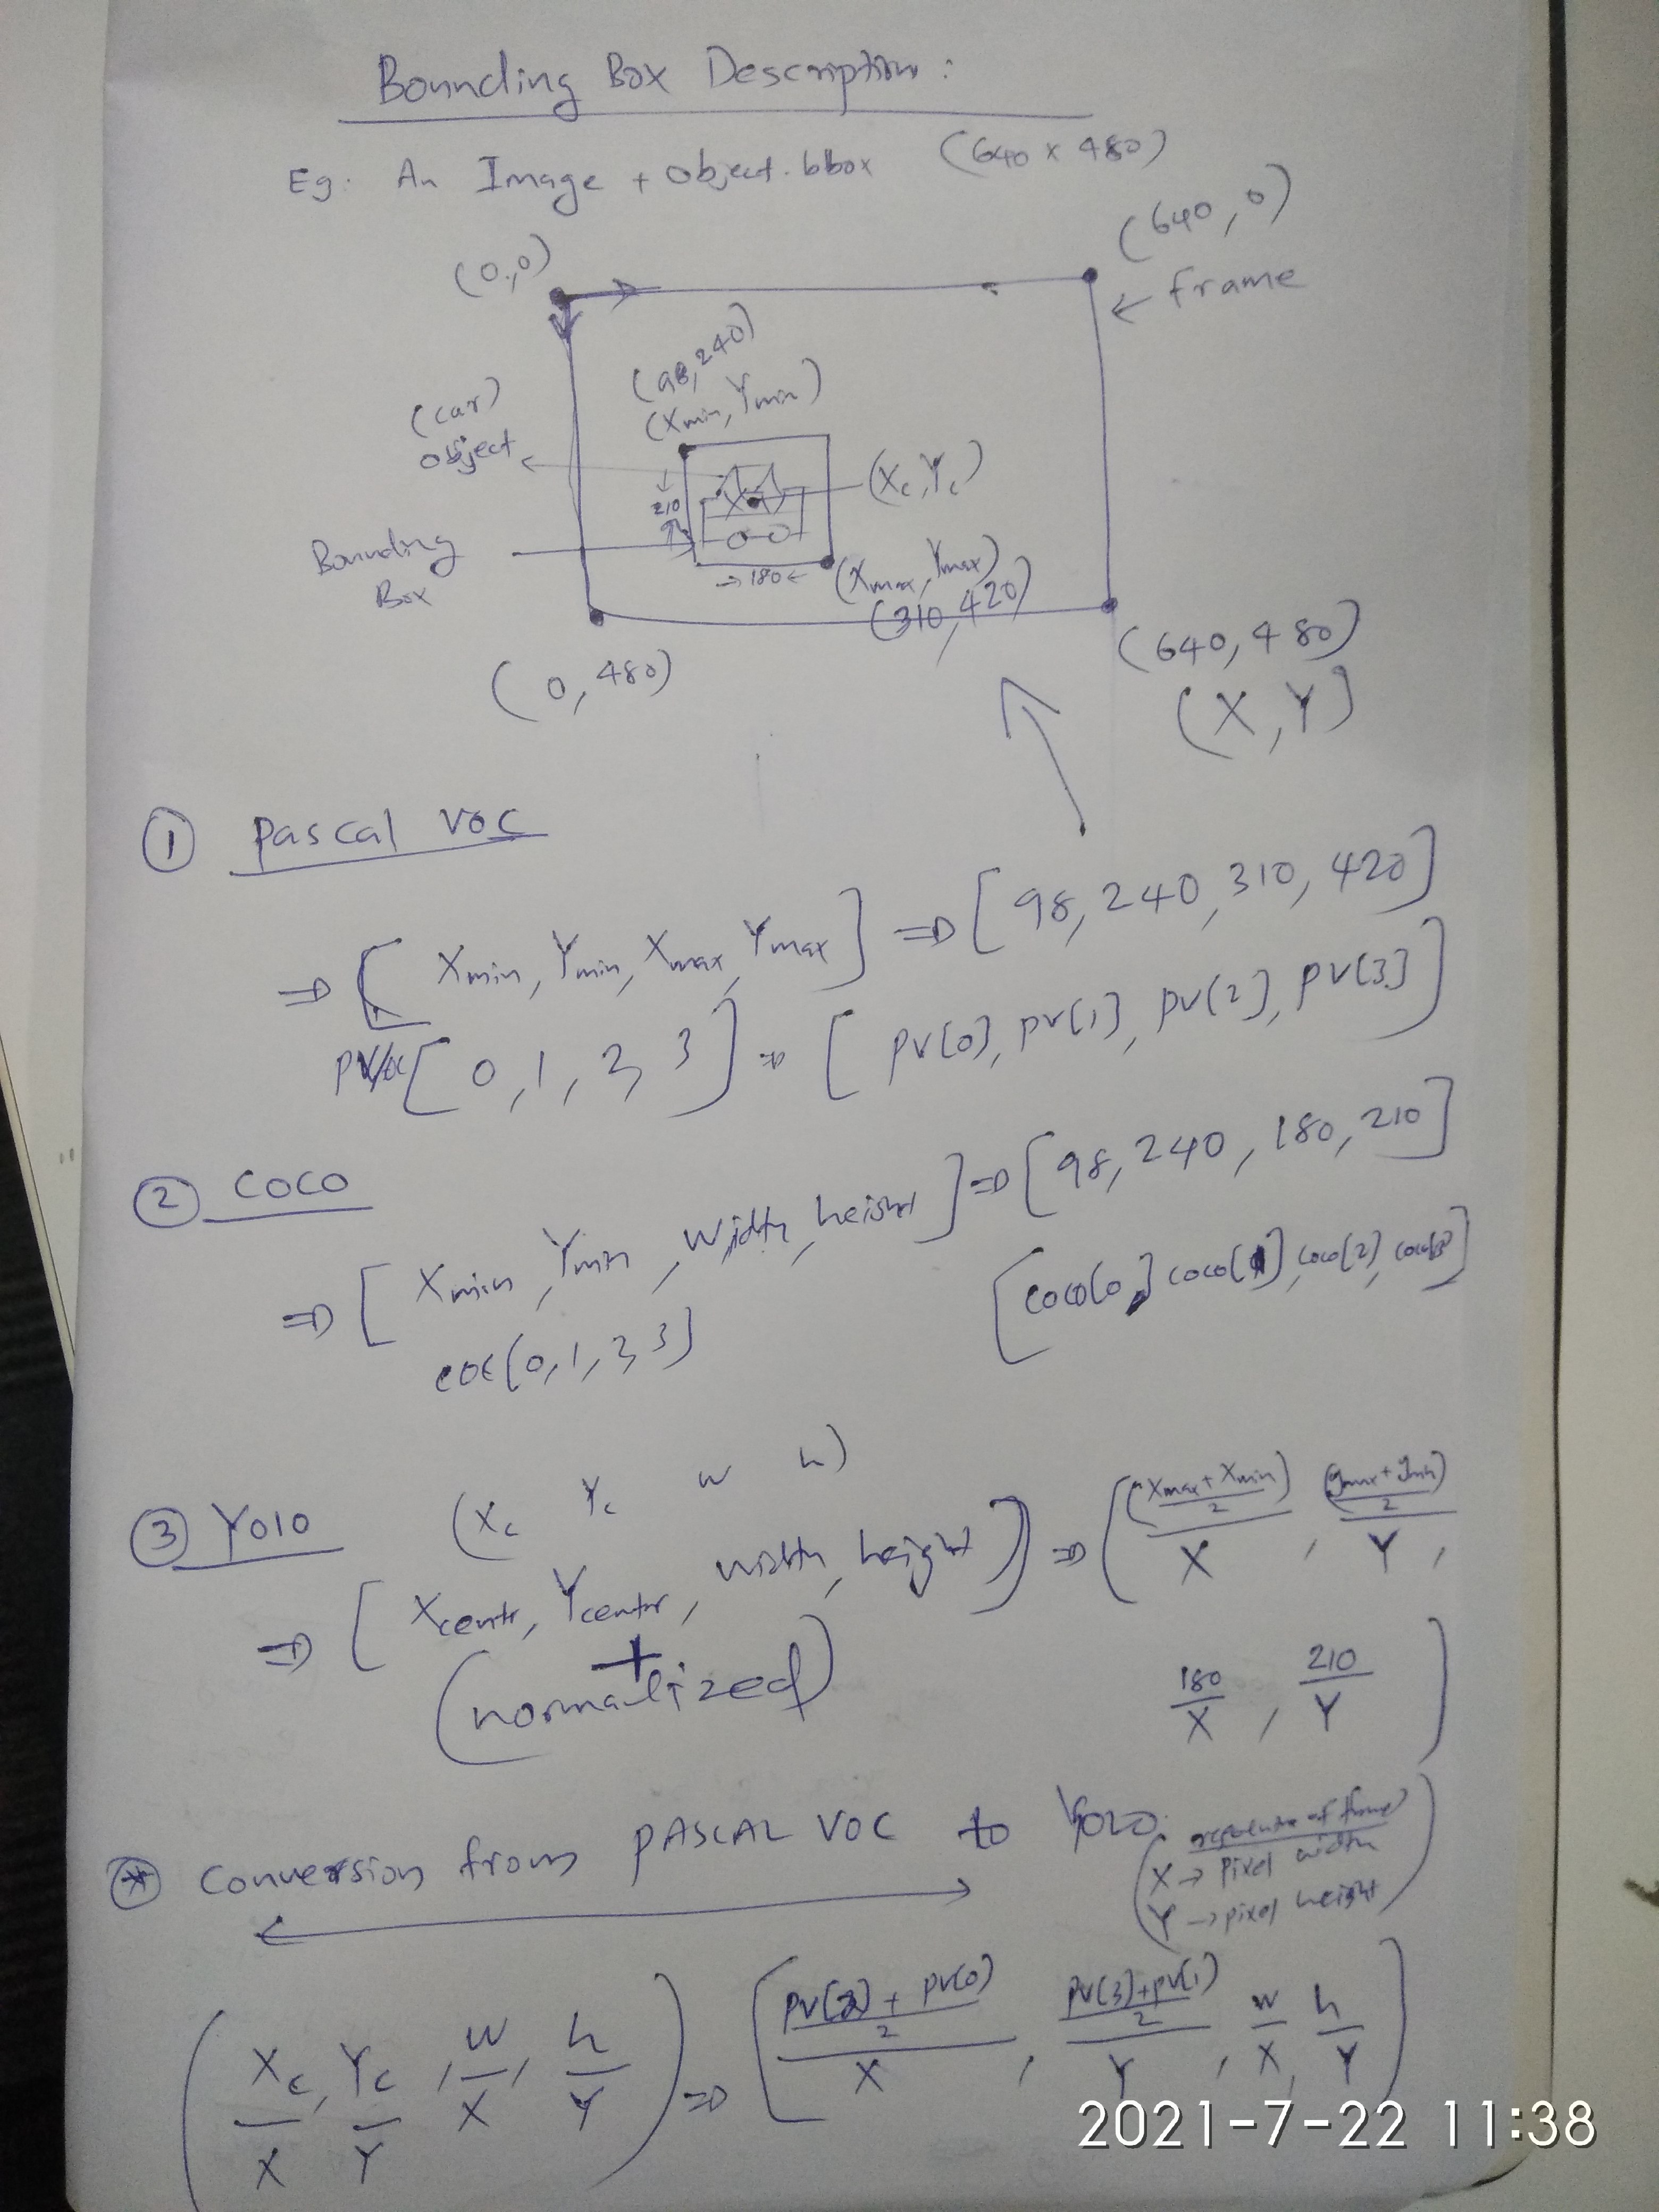 Bounding Box Description:
Eg. An Image + object. bbox (640 x 480)
(0,0)
(640,0)
← frame
(98,240)
(Xmin, Ymin)
(car)
object
(Xc, Yc)
210
Bounding
Box
→ 180 ←
(Xmax, Ymax)
(310,420)
(0, 480)
(640, 480)
(X, Y)
① Pascal VOC
⇒ [Xmin, Ymin, Xmax, Ymax] ⇒ [98, 240, 310, 420]
[0, 1, 2, 3] ⇒ [PV[0], PV[1], PV[2], PV[3]]
② COCO
⇒ [Xmin, Ymin, Width, height] ⇒ [98, 240, 180, 210]
[0, 1, 2, 3]
[coco[0], coco[1], coco[2], coco[3]]
(Xc Yc w h)
③ Yolo
⇒ [Xcentr, Ycentr, width, height] ⇒ ((Xmax + Xmin)/2 / X, (Ymax + Ymin)/2 / Y,
+
(normalized)
180/X, 210/Y]
⊛ Conversion from PASCAL VOC to YOLO
X → Pixel width
Y → pixel height
(Xc/X, Yc/Y, W/X, h/Y) ⇒ [(PV[2] + PV[0])/2 / X, (PV[3] + PV[1])/2 / Y, w/X, h/Y]
2021-7-22 11:38